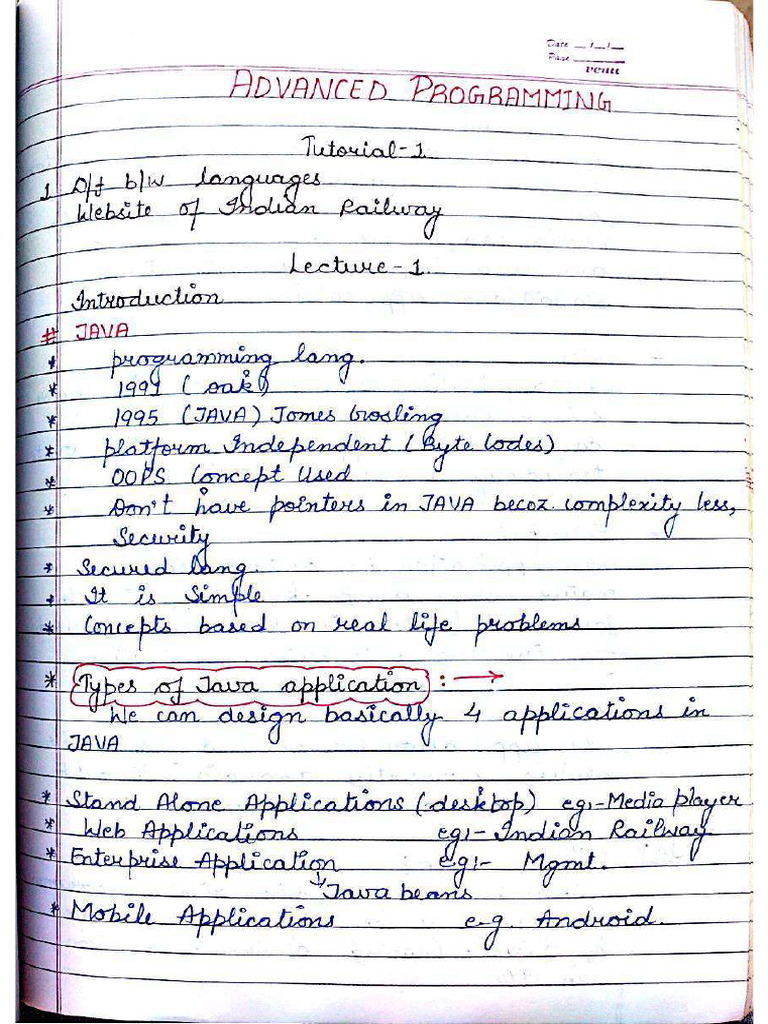 Date __/__/__
Page ______
ADVANCED PROGRAMMING
Tutorial-1
1 D/f b/w languages
Website of Indian Railway
Lecture-1.
Introduction
# JAVA
* programming lang.
* 1991 (oak)
* 1995 (JAVA) James Gosling
* platform Independent (Byte Codes)
* OOPS Concept Used
* Don't have pointers in JAVA becoz. complexity less,
Security
* Secured lang.
* It is Simple
* Concepts based on real life problems
* Types of Java application : →
We can design basically 4 applications in
JAVA
* Stand Alone Applications (desktop) eg:- Media player
* Web Applications eg:- Indian Railway
* Enterprise Application eg:- Mgmt.
↳ Java beans
* Mobile Applications e.g. Android.